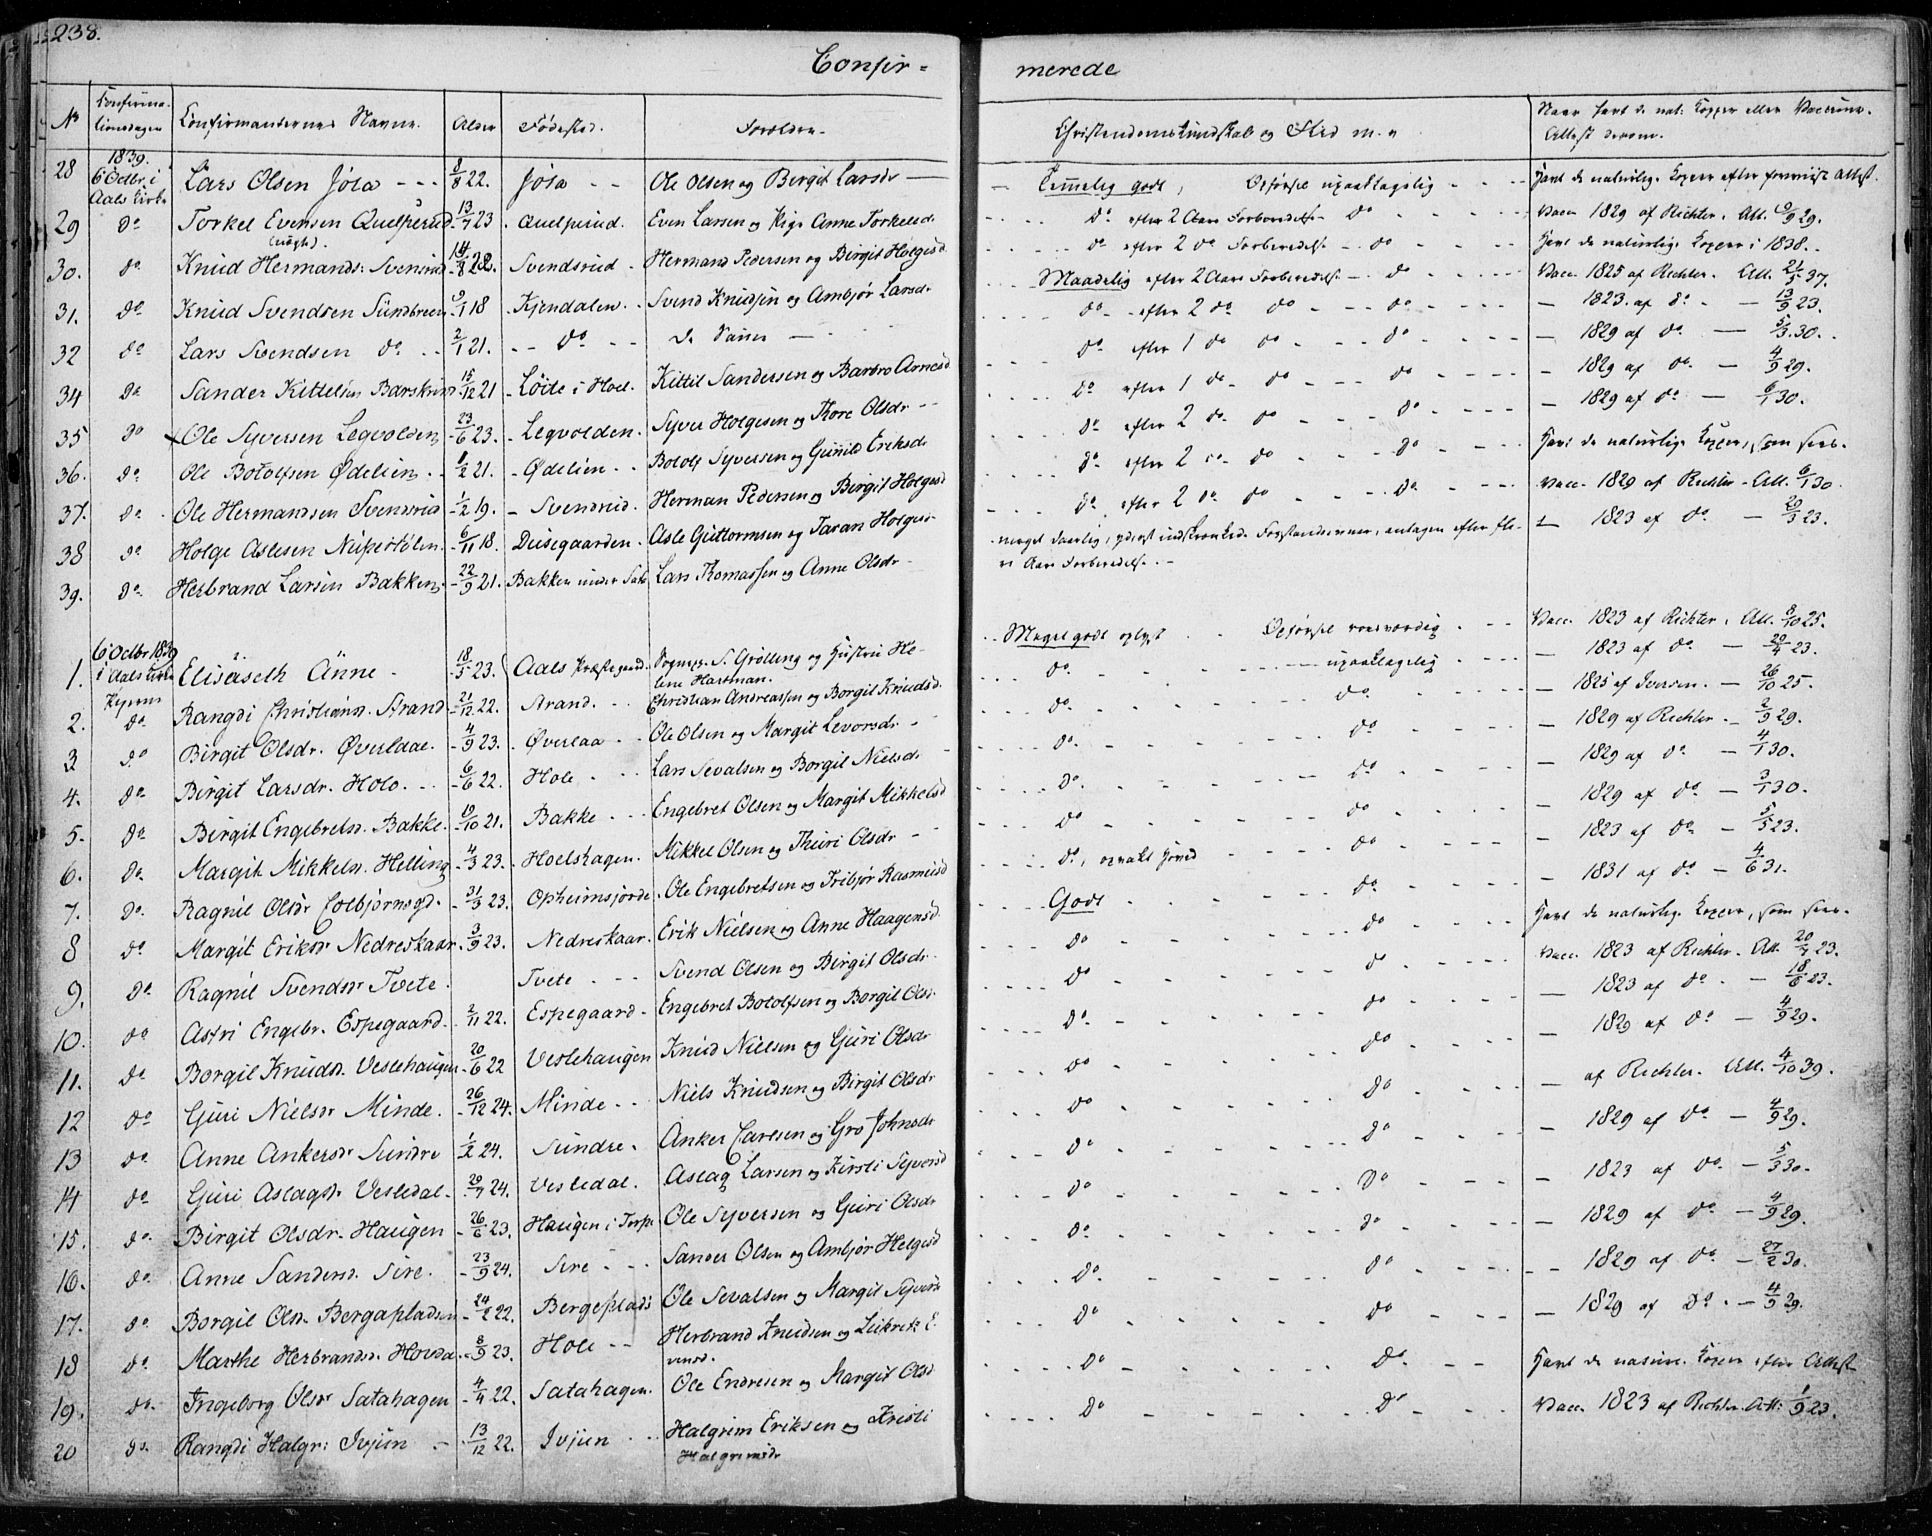 238.
Confir-
merede
No Confirmationsdagen Confirmanternes Navne. Alder Fødested. Forældre. Christendomskundskab og Flid m. v. Naar havt de nat: Kopper eller Vaccine Attest derom.
28 1839. 6 Octbr. i Aals Kirke Lars Olsen Jøla - - - 8/8 22. Jøla - - Ole Olsen og Birgit Larsdr — Temmelig godt, Opførsel upaaklagelig - - - Havt de naturlig. Kopper efter foreviist Attest.
29 do Torkel Evensen Quelprud 13/7 23 Quelprud. Even Larsen og Anne Torkelsd. do efter 2 Aars Forberedelse - do - - - Vacc. 1829 af Richter. Att. 9/9 29.
30. do Knud Hermands: Svensrud 14/8 22. Svendsrud - Hermand Pedersen og Birgit Holgesd. do efter 2 do Forberedelse - do - - - Havt de naturlig. Kopper i 1838.
31. do Knud Svendsen Sundbreen 9/1 18 Kjendalen. Svend Knudsen og Ambjør Larsdr. Maadelig efter 2 Aars Forberedelse - do - - - Vacc. 1825 af Richter. Att. 21/5 37.
32 do Lars Svendsen do. - - 2/1 21. - - do - - De Samme — do - efter 2 do do - - do - - - — 1823. af do. - — 13/9 23.
34 do Sander Kittelsen Barskrind 15/12 21 Løite i Hoel. Kittil Sandersen og Barbro Arnesd. do efter 1 do do - - do - - - — 1829 af do — 5/3 30.
35 do Ole Syversen Legvolden 23/6 23. Legvolden. Syver Holgesen og Thore Olsdr - - do efter 1 do - do - - do - - - — 1829 af do. — 4/9 29.
36. do Ole Botolfsen Ødelien - - 1/2 21. Ødelien - - Botolf Syversen og Gunild Eriksdr do efter 2 do do - - do - - - — 1829 af do. — 6/1 30.
37. do Ole Hermandsen Svensrud 1/2 19. Svendrud. Herman Pedersen og Birgit Holgesd do. efter 2 do do - - do - - - Havt de naturlig. Kopper, som sees.
38 do Holge Aslesen Nupestølen 6/11 18. Dusegaarden. Asle Guttormsen og Taran Holgesd. do. efter 2 do do - - do - - - Vacc. 1829 af Richter. Att. 6/1 30.
39. do Herbrand Larsen Bakken 22/9 21. Bakken under Sata Lars Thomassen og Anne Olsdr - meget daarlig, yderst indskrænkede Forstandsevner, antagen efter flere Aars Forberedelse. - — 1823 af do. — 20/3 23.
1. 6 Octbr 1839 i Aals Kirke Elisabeth Anne - 18/5 23. Aals Præstegaard Sognepr. S. Grølling og Hustru Helene Hartman. Meget godt oplyst - - Opførsel roesværdig - - - Vacc. 1823 af Richter. Att. 8/10 25.
2. do Rangdi Christiansd. Strand 21/12 22. Strand. - Christian Andreassen og Borgil Knudsd. do. - - - upaaklagelig - - - — 1823 af do — 20/4 23.
3 do Birgit Olsdr. Øverlaae. 4/9 23. Øverlaa - - Ole Olsen og Margit Levorsdr. - do. - - - do. - - - — 1825 af Iversen. — 26/10 25.
4. do Birgit Larsdr. Holo. - - 6/6 22. Hole - - Lars Sevalsen og Borgil Nielsdr. do. - - - do - - - — 1829 af Richter. — 2/9 29.
5. do Birgit Engebretsd. Bakke. 19/10 21. Bakke - - - Engebret Olsen og Margit Mikkelsd. do. - - - do - - - — 1829 af do — 4/1 30.
6. do Margit Mikkelsd. Helling 4/3 23. Hoelshagen. Mikkel Olsen og Thuri Olsdr - - do - - - do - - - — 1829 af do. — 3/1 30.
7. do. Ragnil Olsdr Colbjørnsgd. 31/3 23. Opheimsjorde Ole Engebretsen og Tribjør Rasmusd do, - - - do - - - — 1823 af do. — 5/5 23.
8 do Margit Eriksdr Nedreskaar 3/9 23. Nedreskaar. Erik Nielsen og Anne Haagensd. Godt - - - do - - - — 1831 af do — 4/6 31.
9. do Ragnil Svendsdr Tvete. Tvete - - Svend Olsen og Birgit Olsdr. do - - - do - - - Havt de naturlig. Kopper, som sees.
10. do Astri Engebr. Espegaard. 2/11 22. Espegaard - Engebret Botolfsen og Borgil Olsdr. do - - - do - - - Vacc. 1823 af Richter. Att. 20/4 23.
11. do Borgil Knudsdr. Veslehaugen 20/6 22 Veslehaugen Knud Nielsen og Guri Olsdr do. - - - do - - - — 1823 af do. — 18/6 23.
12 do Guri Nielsdr Minde. 26/12 24. Minde - - Niels Knudsen og Birgit Olsdr do - - - do - - - — 1829 af do — 4/9 29.
13 do Anne Ankersdr Sundre 1/2 24. Sundre - Anker Carlsen og Gro Johnsdr do - - - do - - - — af Richter. Att. 4/10 39.
14 do Guri Aslagsdr. Vesledal. 20/7 24. Vesledal. Aslag Larsen og Kirsti Syversd do - - - do - - - — 1829 af do — 4/9 29.
15. do Birgit Olsdr. Haugen 26/6 23. Haugen i Torpe Ole Syversen og Guri Olsdr do - - - do - - - — 1823 af do. — 5/3 30.
16. do Anne Sandersd. Sire. 23/9 24. Sire - - - Sander Olsen og Ambjør Helgesd do. - - - do - - - — 1829 af do — 4/9 29.
17. do Borgil Olsdr Bergapladsen 24/2 22. Bergeplads Ole Sevalsen og Margit Syversd do. - - - do - - - — 1829 af do — 27/2 30.
18 do Marthe Herbrandsd. Hovda. 8/9 23. Hole - - Herbrand Knudsen og Leikrek Evensd. do - - - do - - - — 1829 af do. — 4/9 29.
19. do. Ingeborg Olsdr Satahagen 4/4 22. Satahagen. Ole Endresen og Margit Olsd do - - - do. - - - Havt de naturl. Kopper efter Attest
20 do. Rangdi Halgr: Ivjun - 13/12 22. Ivjun - - Halgrim Eriksen og Kristi Halgrimsdr do - - - do - - - Vacc. 1823 af Richter. Att: 1/9 23.